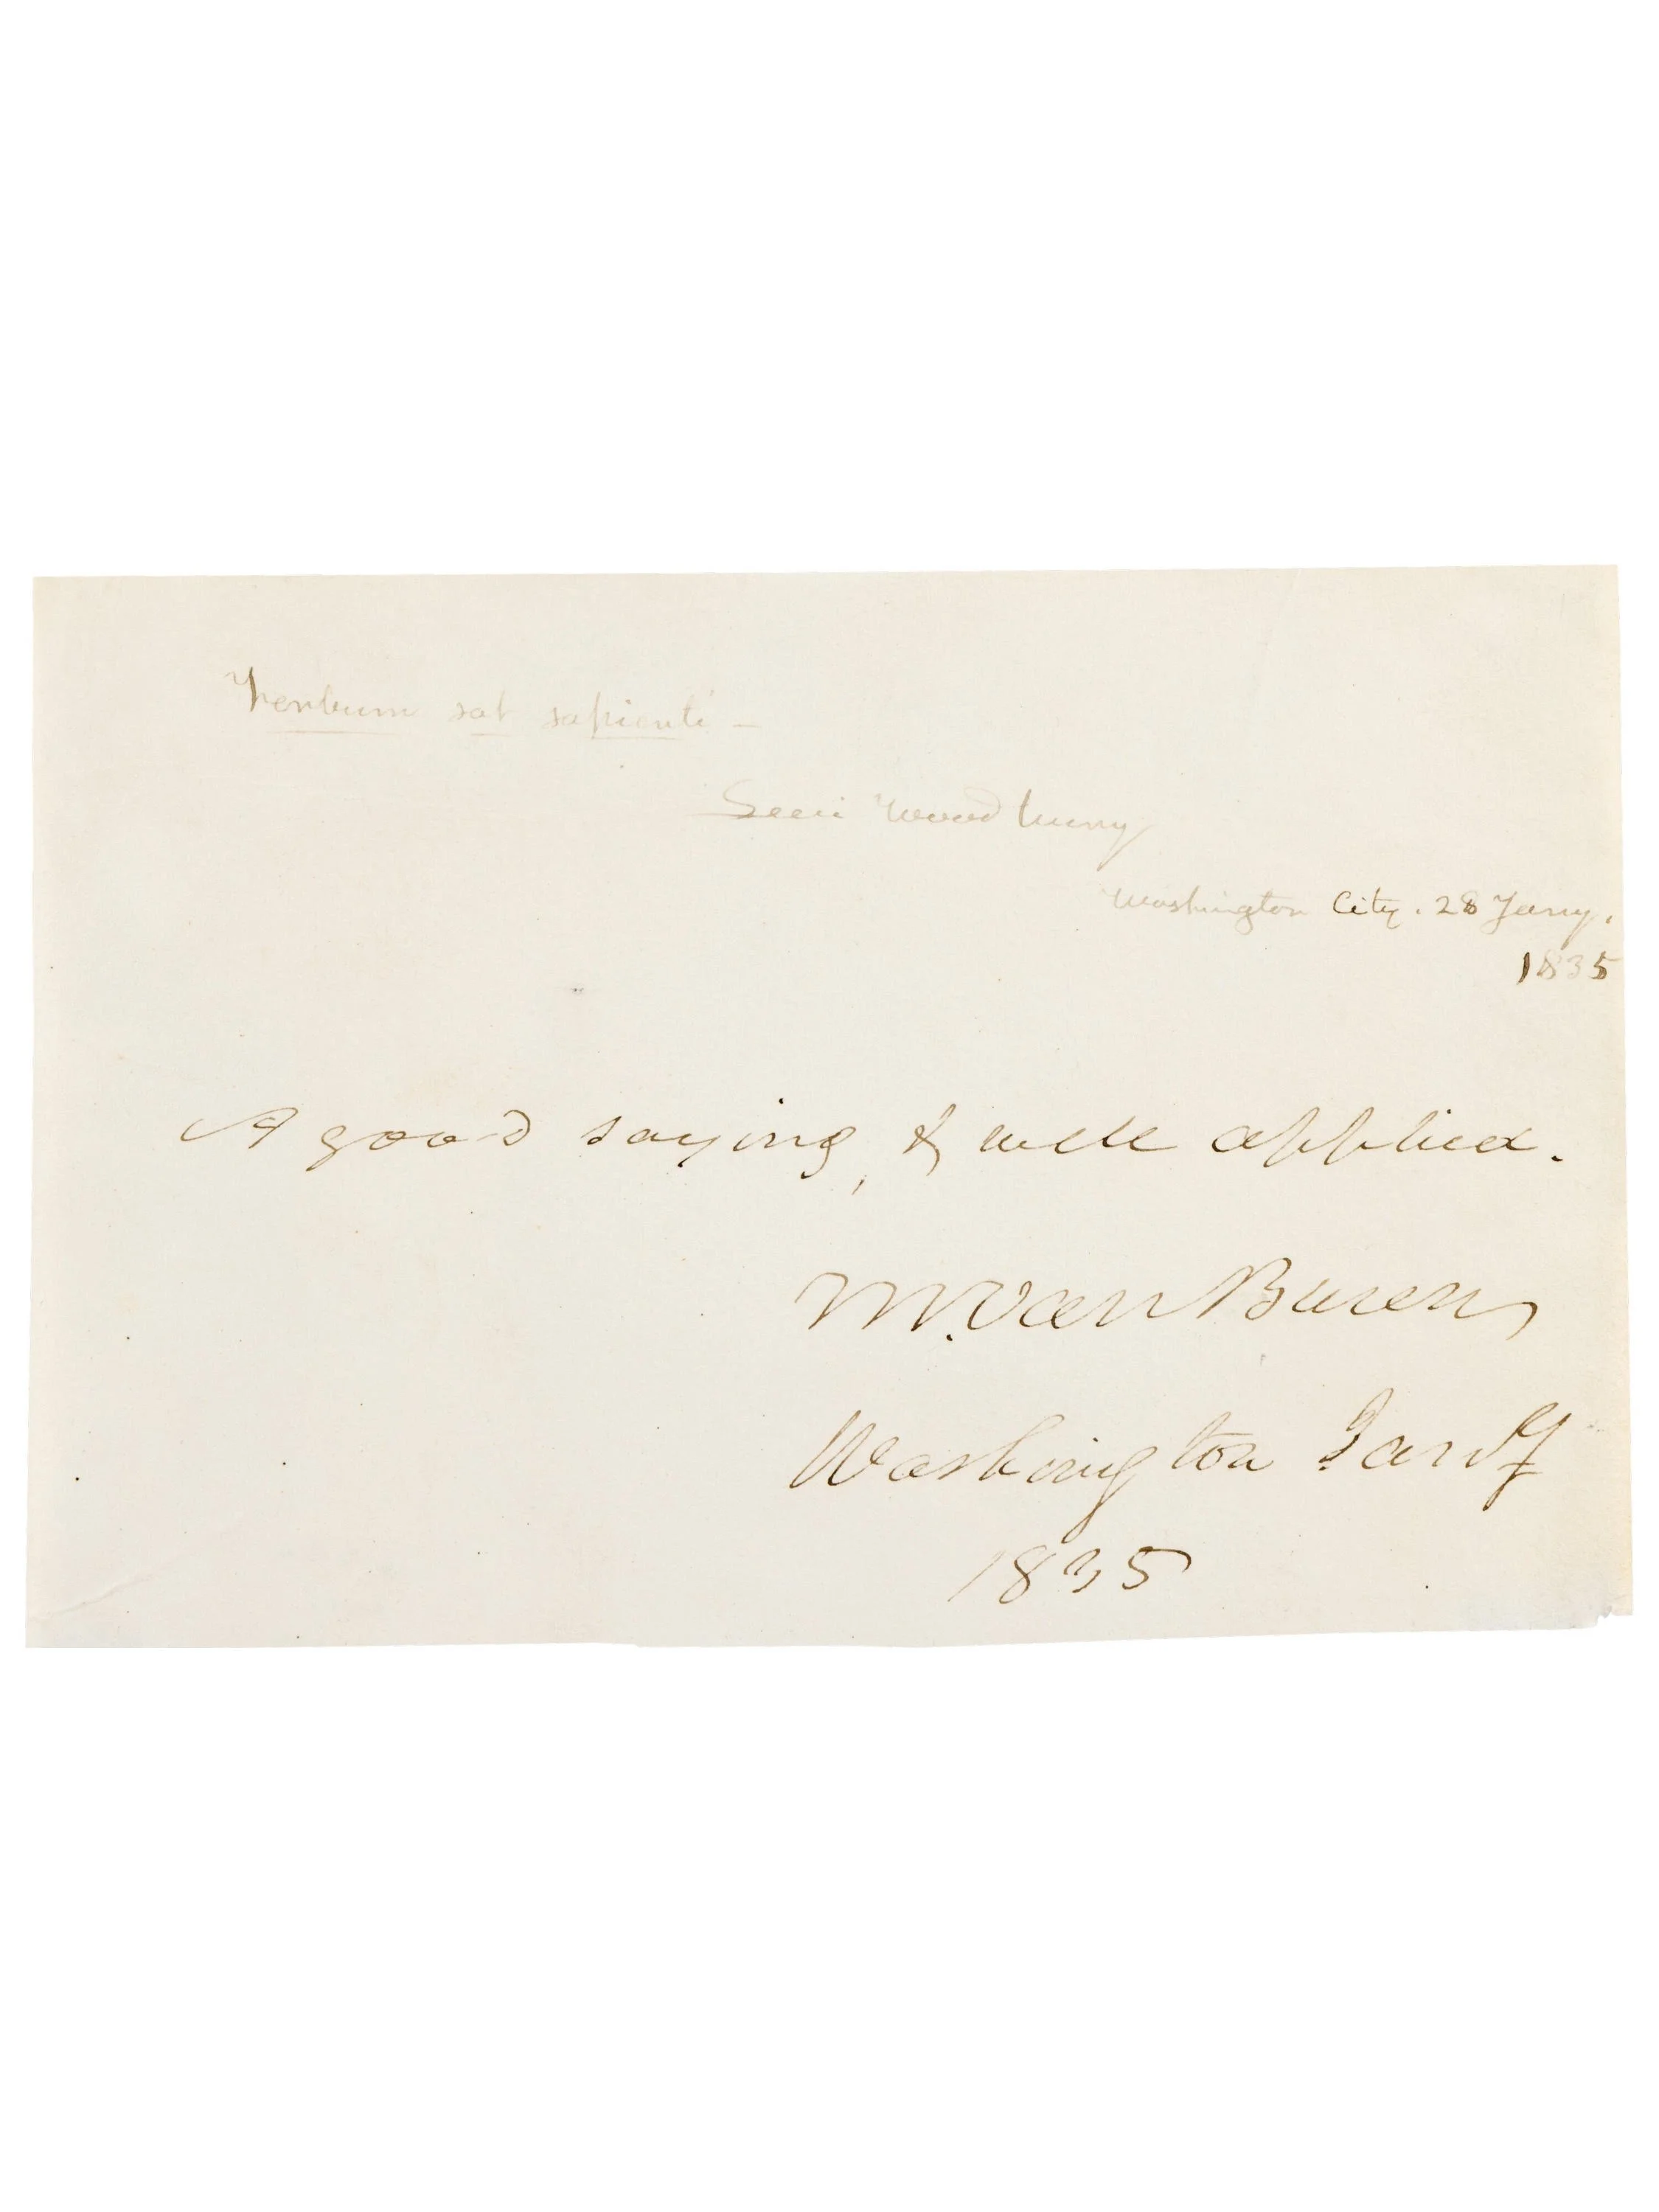 Verbum sat sapienti –
Levi Woodbury
Washington City. 28 Jany.
1835
A good saying, & well applied.
M. Van Buren
Washington
1835